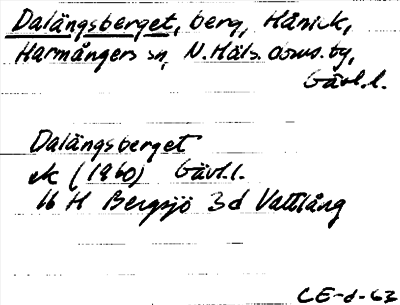 Dalängsberget, berg, Hånick,
Harmångers sn, N. Häls. doms. by,
Gävl.l.
Dalängsberget
ek (1960) Gävl.l.
16 H Bergsjö 3d Vattlång
CE-d-63